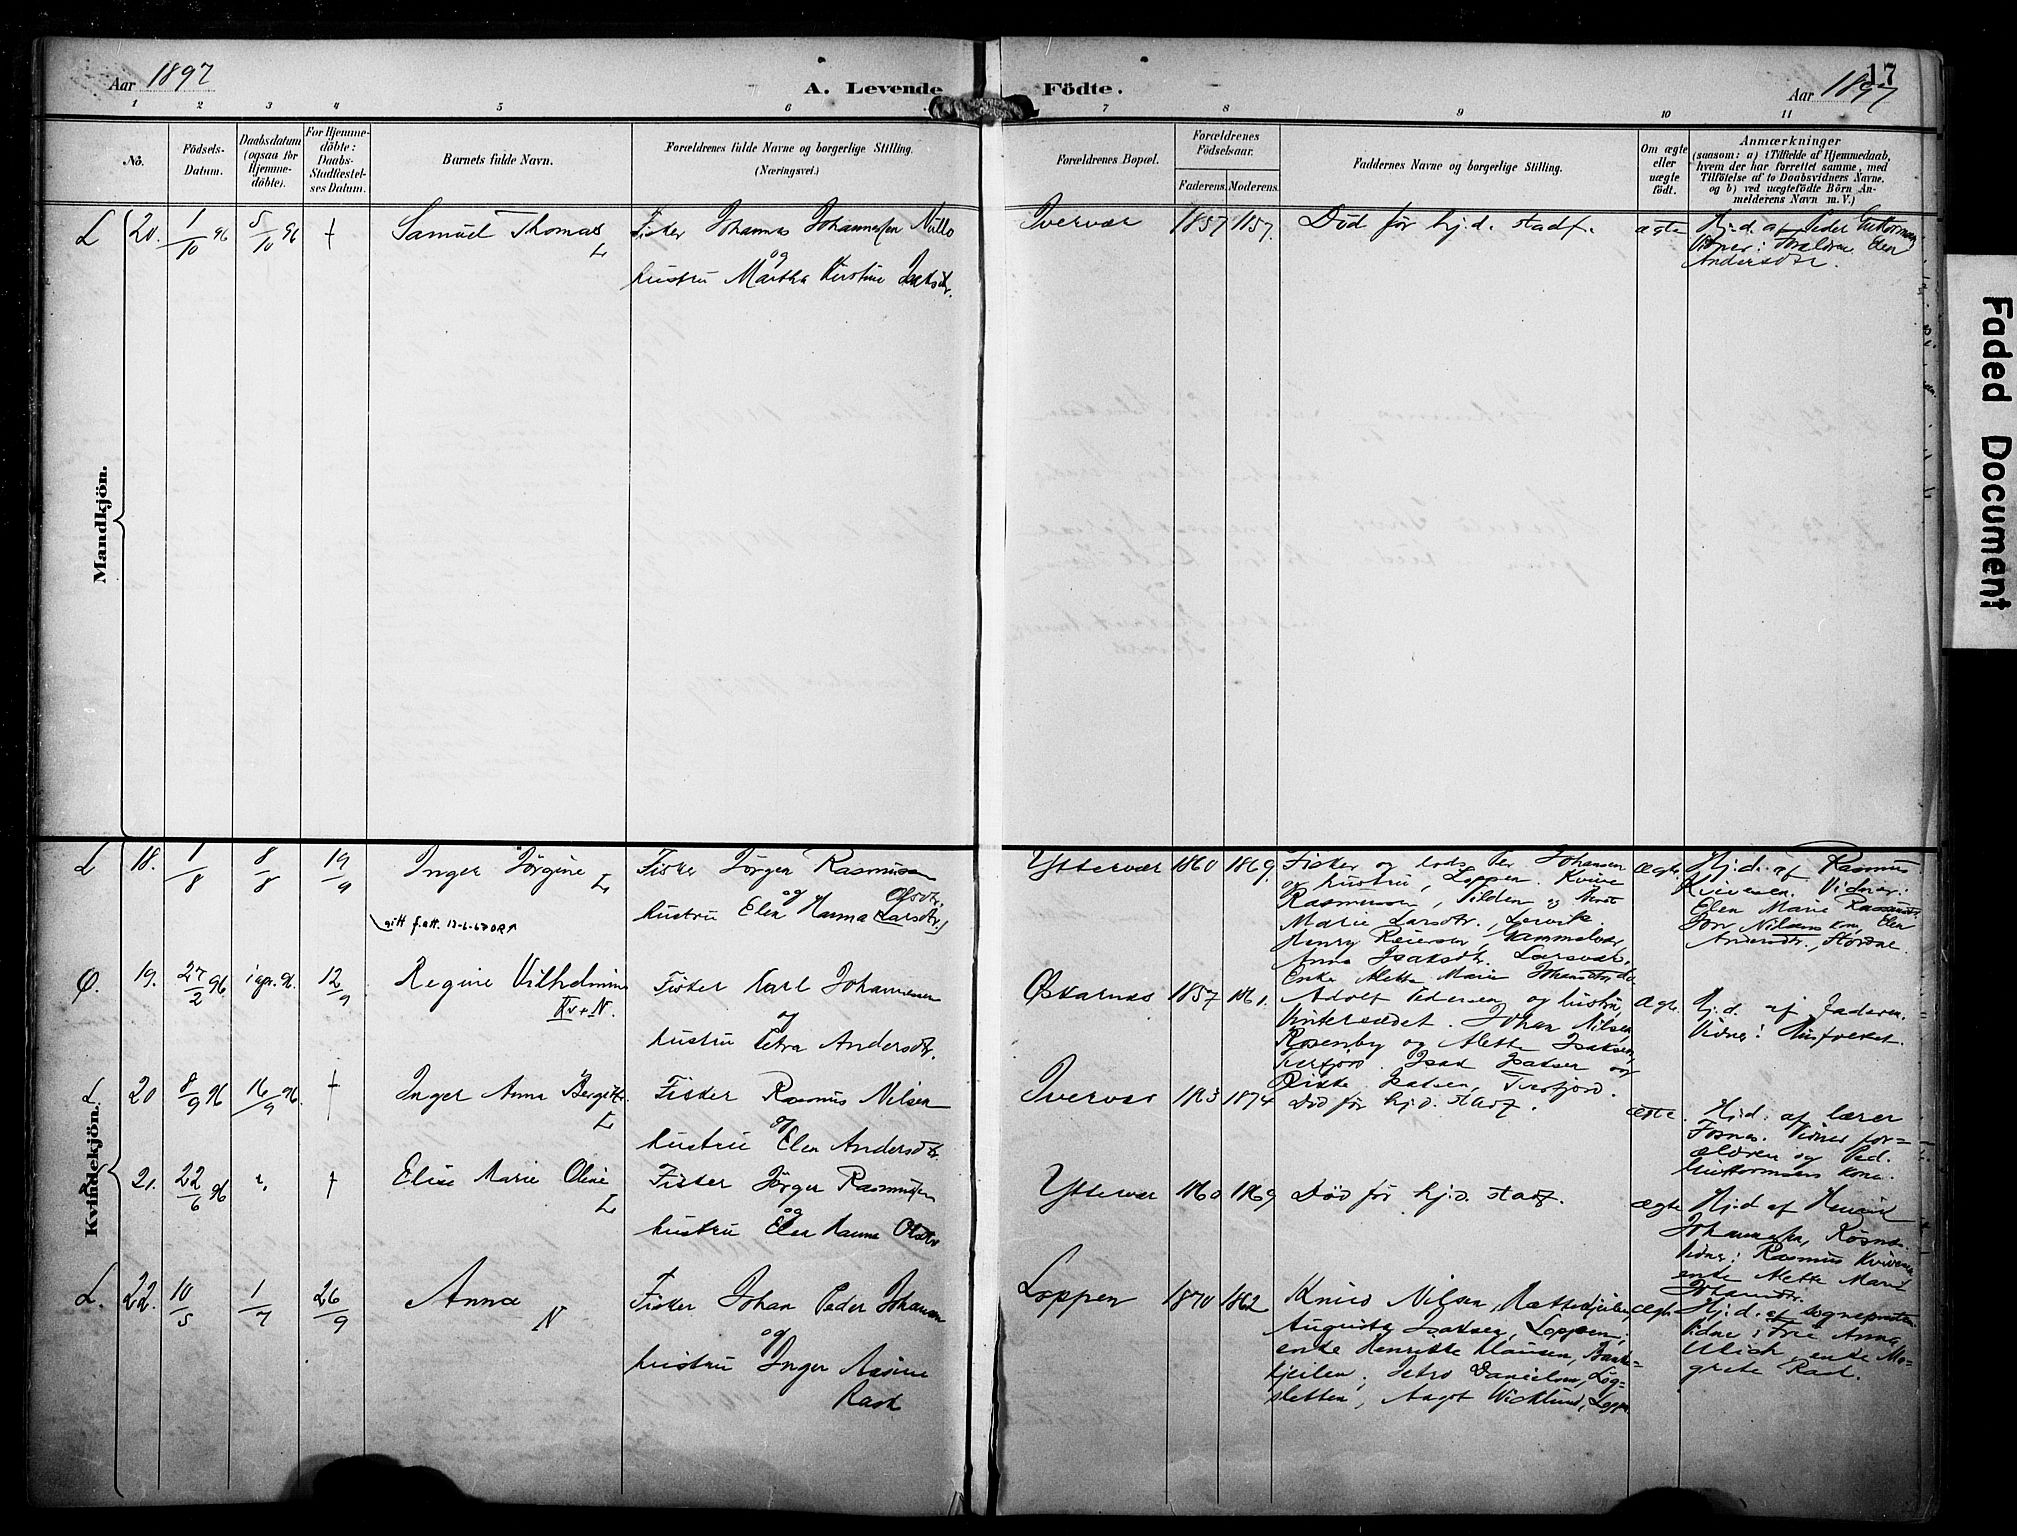 Aar 1897
A. Levende Födte.
Aar 1897
17
1 2 3 4 5 6 7 8 9 10 11
No.
Födsels-
Datum.
Daabsdatum
(ogsaa for
Hjemme-
döbte).
For Hjemme-
döbte:
Daabs-
Stadfæstel-
ses Datum.
Barnets fulde Navn.
Forældrenes fulde Navne og borgerlige Stilling.
(Næringsvei.)
Forældrenes Bopæl.
Forældrenes
Födselsaar.
Faderens. Moderens.
Faddernes Navne og borgerlige Stilling.
Om ægte
eller
uægte
födt.
Anmærkninger
(saasom: a) i Tilfælde af Hjemmedaab,
hvem der har forrettet samme, med
Tilföielse af to Daabsvidners Navne.
og b) ved uægtefödte Börn An-
melderens Navn m. V.)
Mandkjön.
L 20. 1/10 96 5/10 96 +
Samuel Thomas
L
Fisker Johannes Johannesen
og
hustru Martha Kirstine Isaksdtr.
Ivervær 1857 1857.
Død før hj.d. stadf.
ægte
Hj.d. af Peder Guttormsen
Vidner: Forældre. Elen
Andersdtr.
Kvindekjön.
L 18. 1/8 8/8 19/9
Inger Jørgine
L
Fisker Jørgen Rasmussen
og Olsdtr.
hustru Elen Hanna (Larsdtr.)
Yttervær 1860 1869.
Fisker og lods Per Johansen
og hustru, Loppen.
Rasmussen,
Marie Larsdtr., Lervik.
Henry Reiersen, Gammelvær,
Anna Isaksdtr. Larsvær,
Enke Alette Marie Johansdtr.
ægte
Hj.d. af Rasmus
Vidner:
Elen Marie
Nilsens kone, Elen
Andersdtr.,
Q. 19. 27/2 96 12/9
Regine Vilhelmine
Kv+N.
Fisker Karl Johannesen
og
hustru Petra Andersdtr.
Øskarnes 1857 1861.
Adolf Pedersen og hustru,
Vintersædet. Johan Nilsen,
Rosenby og Alette Isaksen,
Tverfjord. Isak Isaksen og
Isaksen, Tverfjord.
ægte
Hj.d. af Faderen.
Vidner: Husfolket.
L 20 8/9 96 16/9 96 +
Inger Anna Bergitte
L
Fisker Rasmus Nilsen
og
hustru Elen Andersdtr.
Ivervær 1863 1874
Død før hj.d. stadf.
ægte.
Hj.d. af lærer
Fosnes. Vidner for-
ældren og Ped.
Guttormsens kone.
21. 22/6 96 " +
Elise Marie Oline
L
Fisker Jørgen Rasmussen
og
hustru Elen Hanna Olsdtr
Yttervær 1860 1869
Død før hj.d. stadf.
ægte
Hj.d af Henrik
Johannesen,
Vidner: Rasmus
enke Alette Marie
Johansdtr.
L. 22. 10/5 1/7 26/9
Anna
N
Fisker Johan Peder Johansen
og
hustru Inger
Rask
Loppen 1870 1862
Knud Nilsen,
Augusta Isaksen, Loppen,
enke Henrikke Klausen,
Petra Danielsen, Løg-
sletten, Aagot Wicklund, Loppen
ægte
Hj.d. af sognepresten
Vidner: Frk Anna
Ulich, enke Ma-
grete Rask.
Faded Document